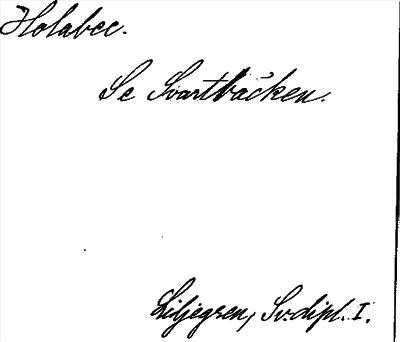 Holabec.
Se Svartbäcken.
Liljegren, Sv. dipl. I.